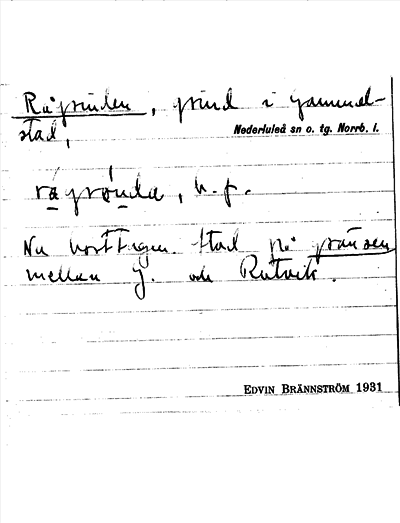 Rågrinden, grind i Gammel-
stad,
Nederluleå sn o. tg. Norrb. l.
n. f.
Nu borttagen. Stod på gränsen
mellan G. och Rutvik.
EDVIN BRÄNNSTRÖM 1931